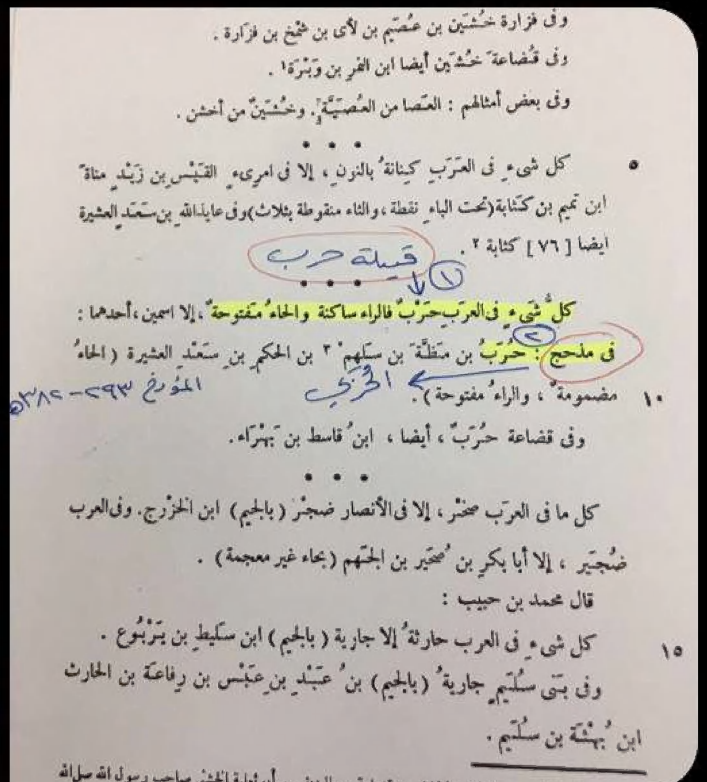 وفى فزارة خُشَين بن عُصَيم بن لأى بن شمْخ بن فزارة .
وفى قُضاعة خُشَين أيضا ابن النمر بن وَبْرَة ١ .
وفى بعض أمثالهم : العَصا من العُصَيَّة . وخُشَينٌ من أخشن .
• • •
٥ كل شىءٍ فى العَرَبِ كِنانةُ بالنونِ ، إلا فى امرىءِ القَيْس بن زَيْد مناةَ
ابن تميم بن كَثابة (تحت الباء نقطة ، والثاء منقوطة بثلاث) وفى عايذالله بن سَعَد العشيرة
ايضا [ ٧٦ ] كثابة ٢ .
قبيلة حرب
• • •
١
كلُّ شىءٍ فى العرَبِ حَرْبٌ فالراء ساكنة والحاءُ مَفتوحةٌ ، إلا اسمين ، أحدهما :
٢
فى مذحج : حُرَبُ بن مَظَّة بن سَلهم ٣ بن الحكم بن سَعْد العشيرة ( الحاءُ
الحُرَبي
المؤرخ ٢٩٣ - ٣٨٢ هـ
١٠ مضمومةٌ ، والراءُ مفتوحة ) .
وفى قضاعة حُرَبٌ ، أيضا ، ابنُ قاسط بن بَهْرَاء .
• • •
كل ما فى العرَب صخْر ، إلا فى الأنصار ضجْر ( بالجيم ) ابن الخزْرج . وفى العرب
ضُجَير ، إلا أبا بكر بن صُحَير بن الجَهم ( بحاء غير معجمة ) .
قال محمد بن حبيب :
١٥ كل شىءٍ فى العرب حارثةُ إلا جارية ( بالجيم ) ابن سَليط بن يَرْبُوع .
وفى بَنى سُلَيم جاريةُ ( بالجيم ) بنُ عَبْد بن عَبْس بن رِفاعَة بن الحارث
ابن بُهْثَة بن سُلَيم .
صاحب رسول الله صلى الله